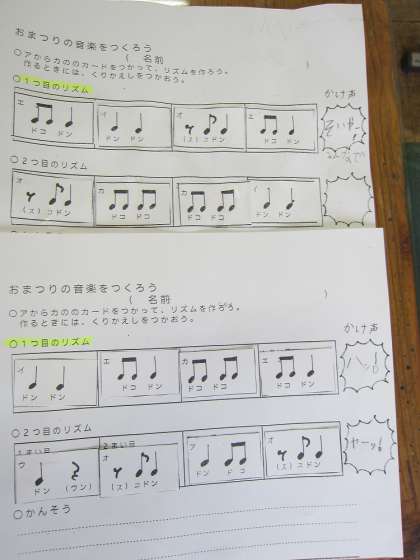 おまつりの音楽をつくろう
( 名前 )
○アからカののカードをつかって、リズムを作ろう。
作るときには、くりかえしをつかおう。
○1つ目のリズム
かけ声
エ イ オ エ
ドコ ドン ドン ドン (ス)コドン ドコ ドン
そいやー!
○2つ目のリズム
オ カ カ イ
(ス)コドン ドコ ドコ ドコ ドコ ドン ドン
おまつりの音楽をつくろう
( 名前 )
○アからカののカードをつかって、リズムを作ろう。
作るときには、くりかえしをつかおう。
○1つ目のリズム
かけ声
イ エ カ エ
ドン ドン ドコ ドン ドコ ドコ ドコ ドン
ハッ!
○2つ目のリズム
1まい目 2まい目
ウ オ ア オ
ドン (ウン) (ス)コドン ドン ドコ (ス)コドン
ヤーッ!
○かんそう